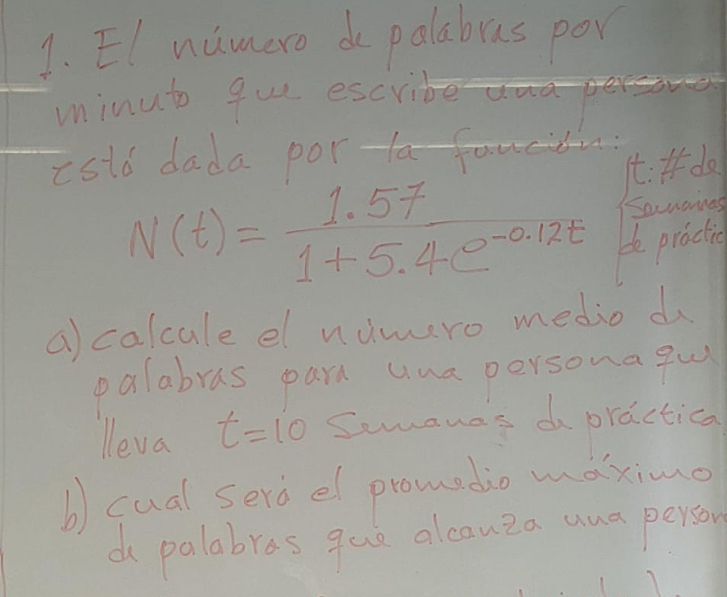 1. El número de palabras por
minuto que escribe una persona
está dada por la función:
N(t) = 1.57 / (1 + 5.4e^(-0.12t))
t: # de
semanas
de práctic
a) calcule el número medio de
palabras para una persona que
lleva t=10 semanas de práctica
b) cual será el promedio máximo
de palabras que alcanza una person